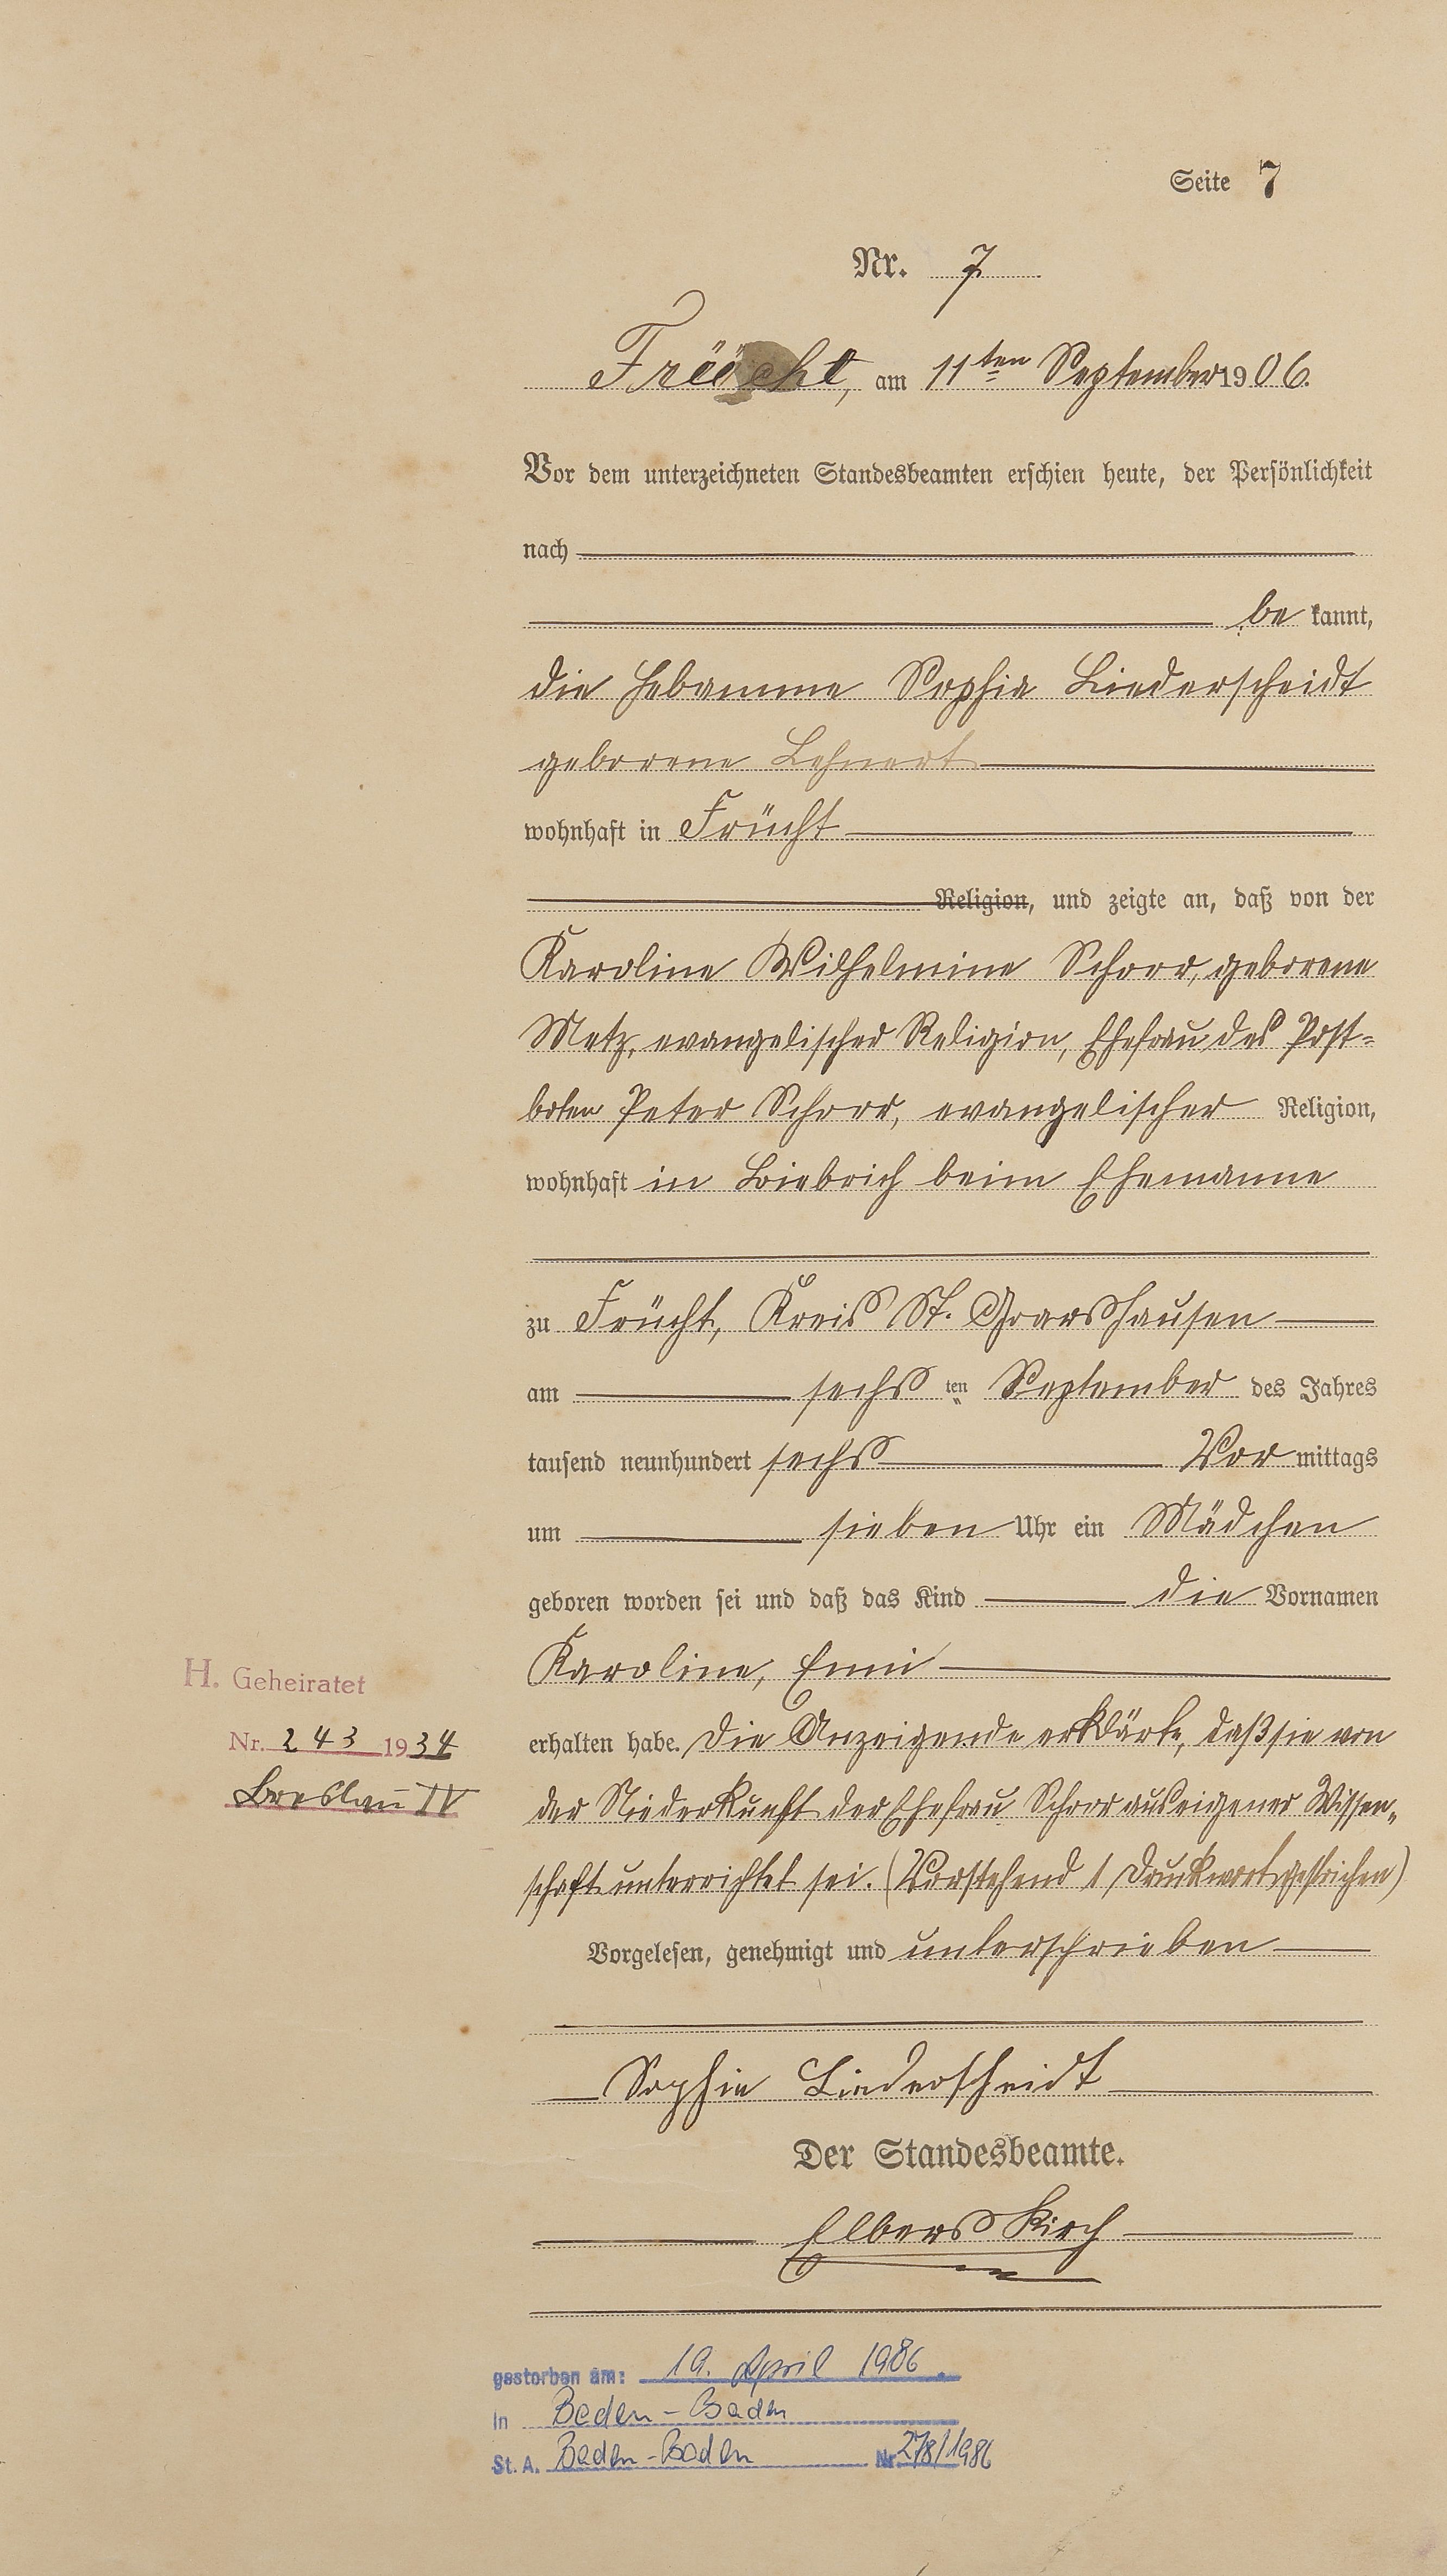 Seite 7
Nr. 7
Früecht, am 11ten September 1906.
Vor dem unterzeichneten Standesbeamten erschien heute, der Persönlichkeit
nach
be kannt,
die Hebamme Sophia Liederscheidt
geborene Lehnert
wohnhaft in Frücht
Religion, und zeigte an, daß von der
Karoline Wilhelmine Schorr, geborene
Metz, evangelischer Religion, Ehefrau des Post-
boten Peter Schorr, evangelischer Religion,
wohnhaft in Biebrich beim Ehemanne
zu Frücht, Kreis St. Goarshausen
am sechs ten September des Jahres
tausend neunhundert sechs Vor mittags
um sieben Uhr ein Mädchen
geboren worden sei und daß das Kind die Vornamen
Karoline, Emmi
H. Geheiratet
Nr. 243 1934
Breslau IV
erhalten habe. Die Anzeigende erklärte, daß sie von
der Niederkunft der Ehefrau Schorr aus eigener Wissen-
schaft unterrichtet sei. (Vorstehend 1 Druckwort gestrichen)
Vorgelesen, genehmigt und unterschrieben
Sophie Liederscheidt
Der Standesbeamte.
Elberskirch
gestorben am: 19. April 1986
in Baden-Baden
St. A. Baden-Baden Nr 278/1986